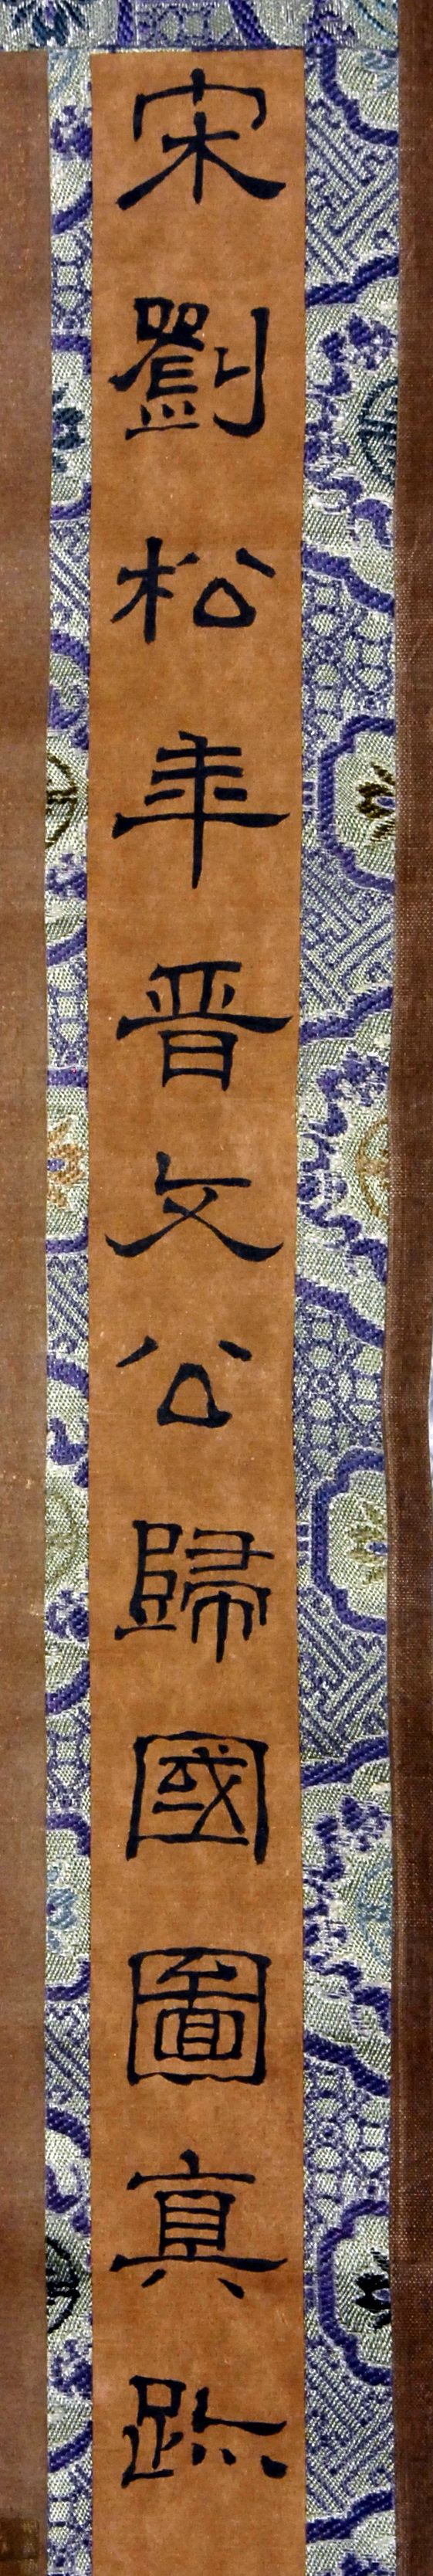 宋劉松年晋文公歸國圖真跡